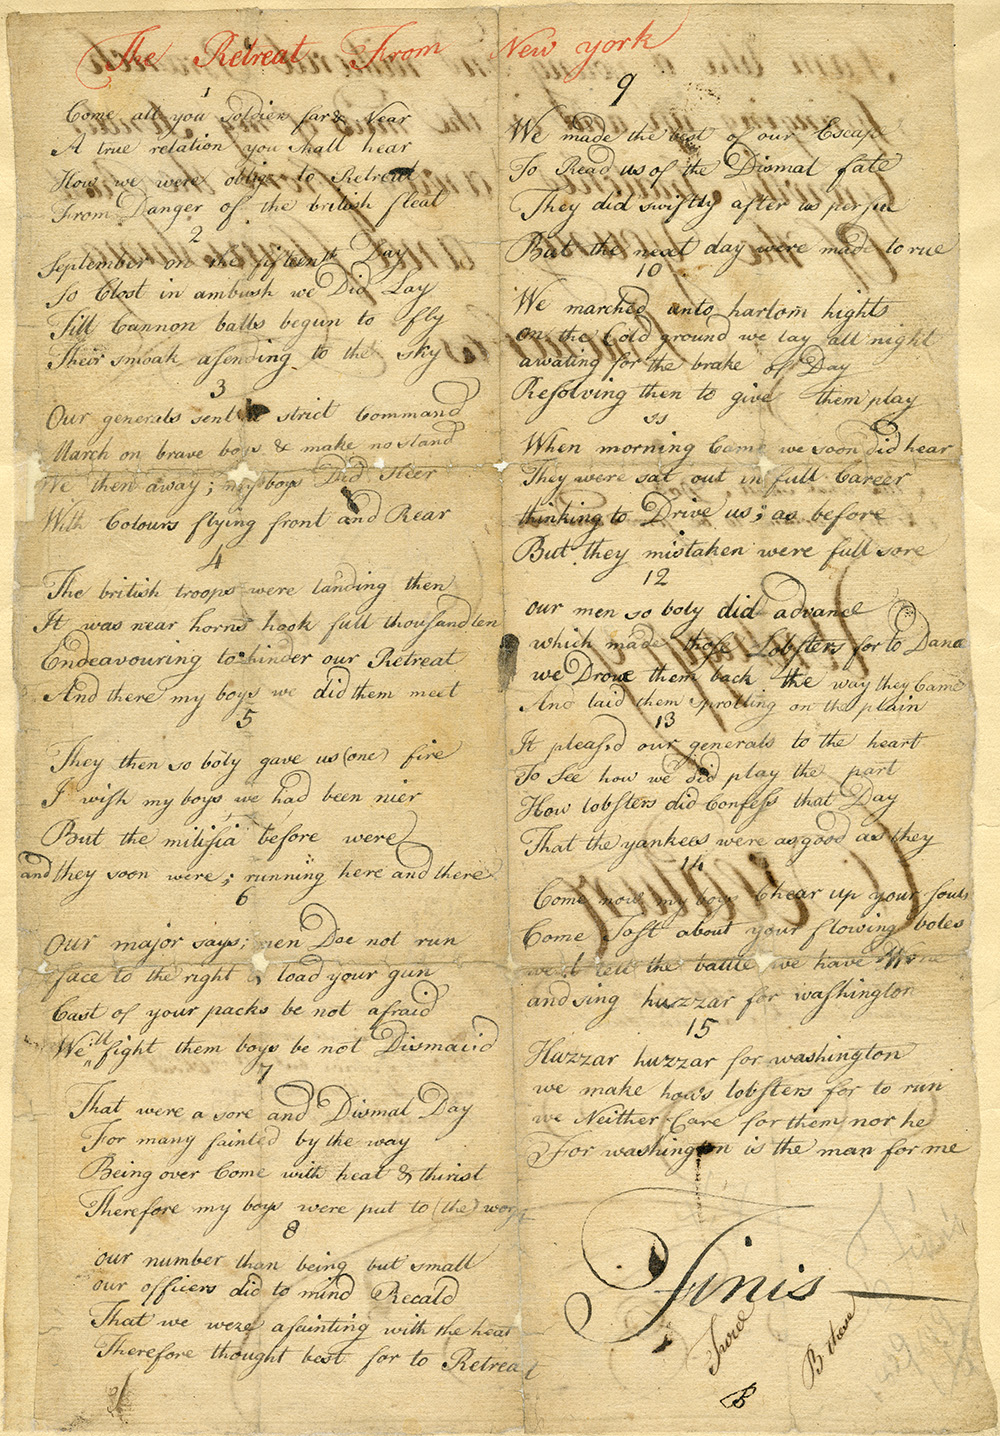 The Retreat From New york
1
Come all you Soldiers far & Near
A true relation you shall hear
How we were oblig'd to Retreat
From Danger of the british fleat
2
September on the fifteenth Day
So Clost in ambush we Did Lay
Till Cannon balls begun to fly
Their smoak asending to the sky
3
Our generals sent a strict Command
March on brave boys & make no stand
We then away; my boys Did steer
With Colours flying front and Rear
4
The british troops were landing then
It was near horns hook full thousand ten
Endeavouring to hinder our Retreat
And there my boys we did them meet
5
They then so boly gave us (one) fire
I wish my boys we had been nier
But the milisia before were
and they soon were; running here and there
6
Our major says; men Doe not run
face to the right & load your gun
Cast of your packs be not afraid
We ill fight them boys be not Dismaiid
7
That were a sore and Dismal Day
For many fainted by the way
Being over Come with heat & thirist
Therefore my boys were put to (the) worst
8
our number than being but small
our officers did to mind Recald
That we were afainting with the heat
Therefore thought best for to Retreat
9
We made the best of our Escape
To Read us of the Dismal fate
They did swiftly after us persue
But the next day were made to rue
10
We marched unto harlom hights
on the Cold ground we lay all night
awating for the brake off Day
Resolving then to give them play
11
When morning Came we soon did hear
They were sat out in full Career
thinking to Drive us; as before
But they mistaken were full sore
12
our men so boly did advance
which made those Lobsters for to Dance
we Drove them back the way they Came
And laid them sprolling on the plain
13
It pleased our generals to the heart
To See how we did play the part
How lobsters did Confess that Day
That the yankees were as good as they
14
Come now my boys Chear up your souls
Come Tost about your flowing boles
we'l tell the battle we have Wone
and sing huzzar for washington
15
Huzzar huzzar for washington
we make hows lobsters for to run
we Neither Care for them nor he
For washington is the man for me
Finis